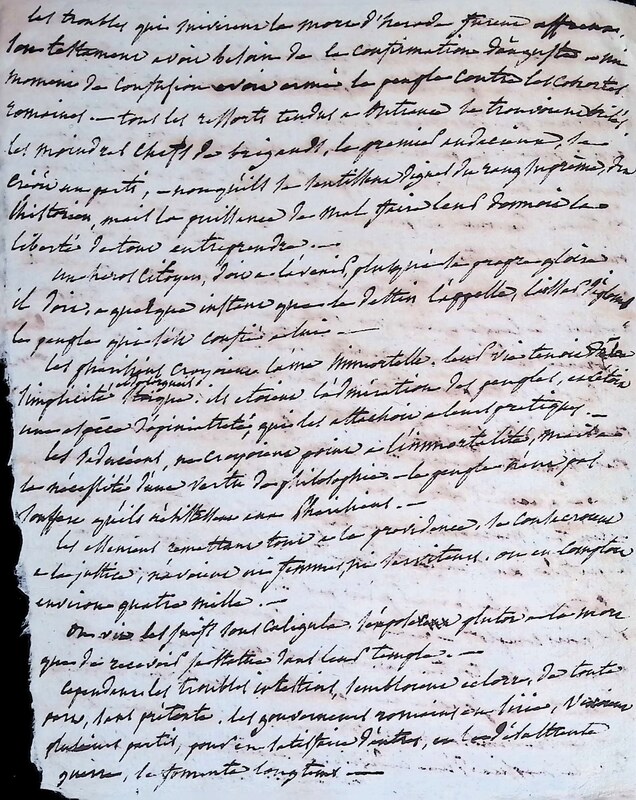 les troubles qui suivirent la mort d'herode furent affreux.
son testament avoit besoin de la confirmation d'auguste un
moment de confusion avoit armé le peuple contre les cohortes
romaines — tous les ressorts tendus a outrance se trouvoient brisés
les moindres chefs de brigands, le premier audacieux, se
créoit un parti, — non qu'ils se sentissent dignes du rang suprême, dit
l'historien, mais la puissance de mal faire leur donnoit la
liberté de tout entreprendre. —
un heros citoyen, doit a l'avenir plus que sa propre gloire
il doit, a quelque instant que le destin l'appelle, laisser
le peuple qui s'est confié a lui —
les pharisiens croyoient l'ame immortelle. leur vie tenoit de la
simplicité stoique. ils etoient l'admiration des peuples, et c'étoit
une espèce d'opiniatreté, qui les attachoit a leurs pratiques. —
les saducéens, ne croyoient point a l'immortalité, mais a
la nécessité d'une vertu de philosophie. — le peuple n'eut pas
souffert qu'ils résistassent aux Pharisiens. —
les esseniens remettant tout a la providence, se consacroient
a la justice, n'avoient ni femmes, ni serviteurs. on en comptoit
environ quatre mille. —
on vit les juifs sous caligula s'exposer plutot a la mort
que de recevoir sa statue dans leur temple. —
Cependant les troubles intestins, sembloient eclorre, de toute
part, sans prétexte. les gouverneurs romains en sirie,
plusieurs partis, pour en satisfaire d'autres, et la désolante
guerre, se fomenta longtems —